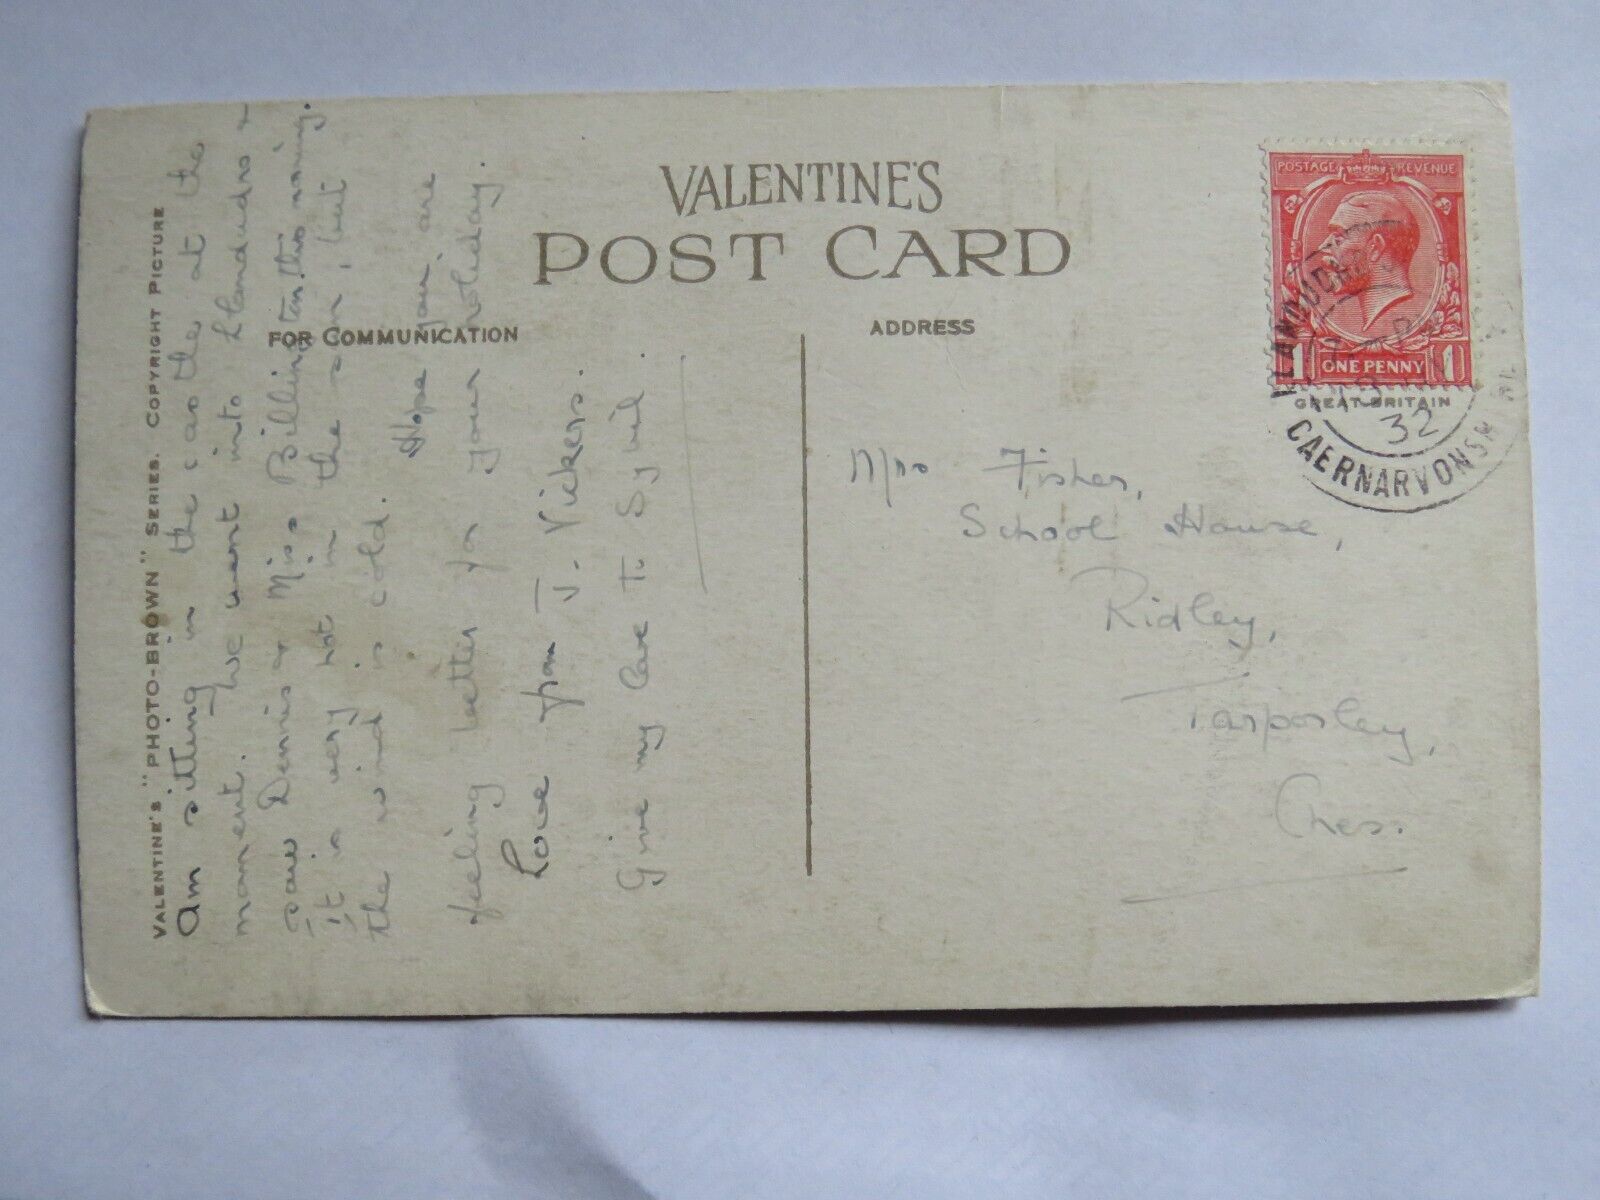 VALENTINE'S "PHOTO-BROWN" SERIES. COPYRIGHT PICTURE
VALENTINE'S
POST CARD
FOR COMMUNICATION
ADDRESS
Am sitting in the car at the
moment. We went into Llandudno &
saw Dennis & Miss Billington this morning.
It is very hot in the sun, but
the wind is cold.
Hope you are
feeling better for your holiday.
Love from J. Vickers.
Give my love to Sybil.
Mrs Fisher,
School House,
Ridley,
Tarporley,
Ches.
POSTAGE REVENUE
1 ONE PENNY 1
GREAT BRITAIN
32
CAERNARVONS